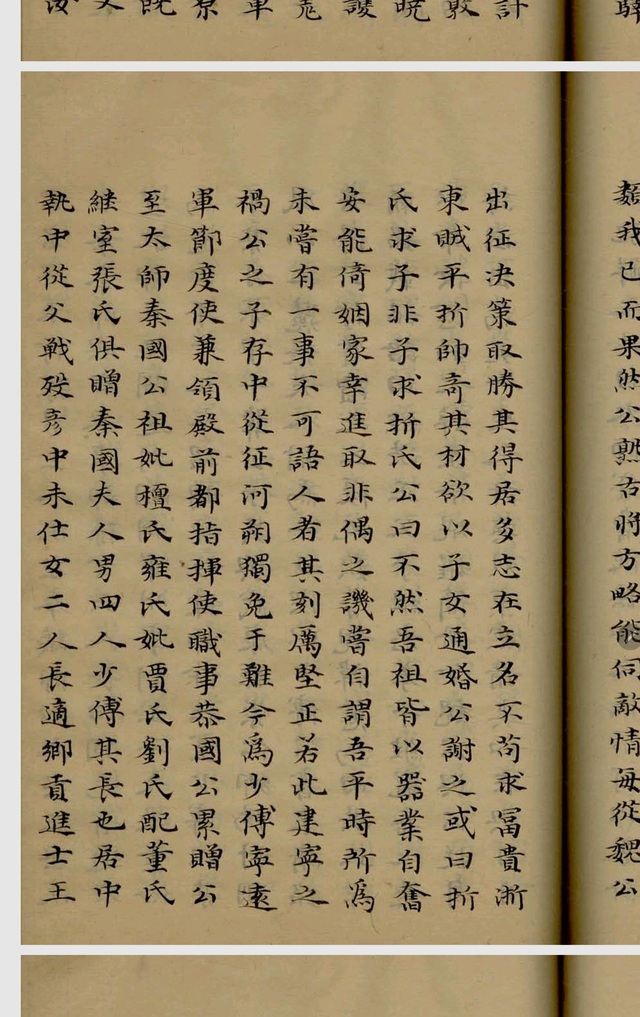 計
我已而果然公熟古將方略能伺敵情每從魏公
出征決策取勝其得居多志在立名不苟求冨貴浙
東賊平折帥竒其材欲以子女通婚公謝之或曰折
氏求子非子求折氏公曰不然吾祖皆以器業自奮
安能倚姻家幸進取非偶之譏嘗自謂吾平時所為
未嘗有一事不可語人者其刻厲堅正若此建寧之
禍公之子存中從征河朔獨免于難今為少傅寧遠
軍節度使兼領殿前都指揮使職事恭國公累贈公
至太師秦國公祖妣檀氏雍氏妣賈氏劉氏配董氏
繼室張氏俱贈秦國夫人男四人少傅其長也居中
執中從父戰歿彦中未仕女二人長適鄉貢進士王